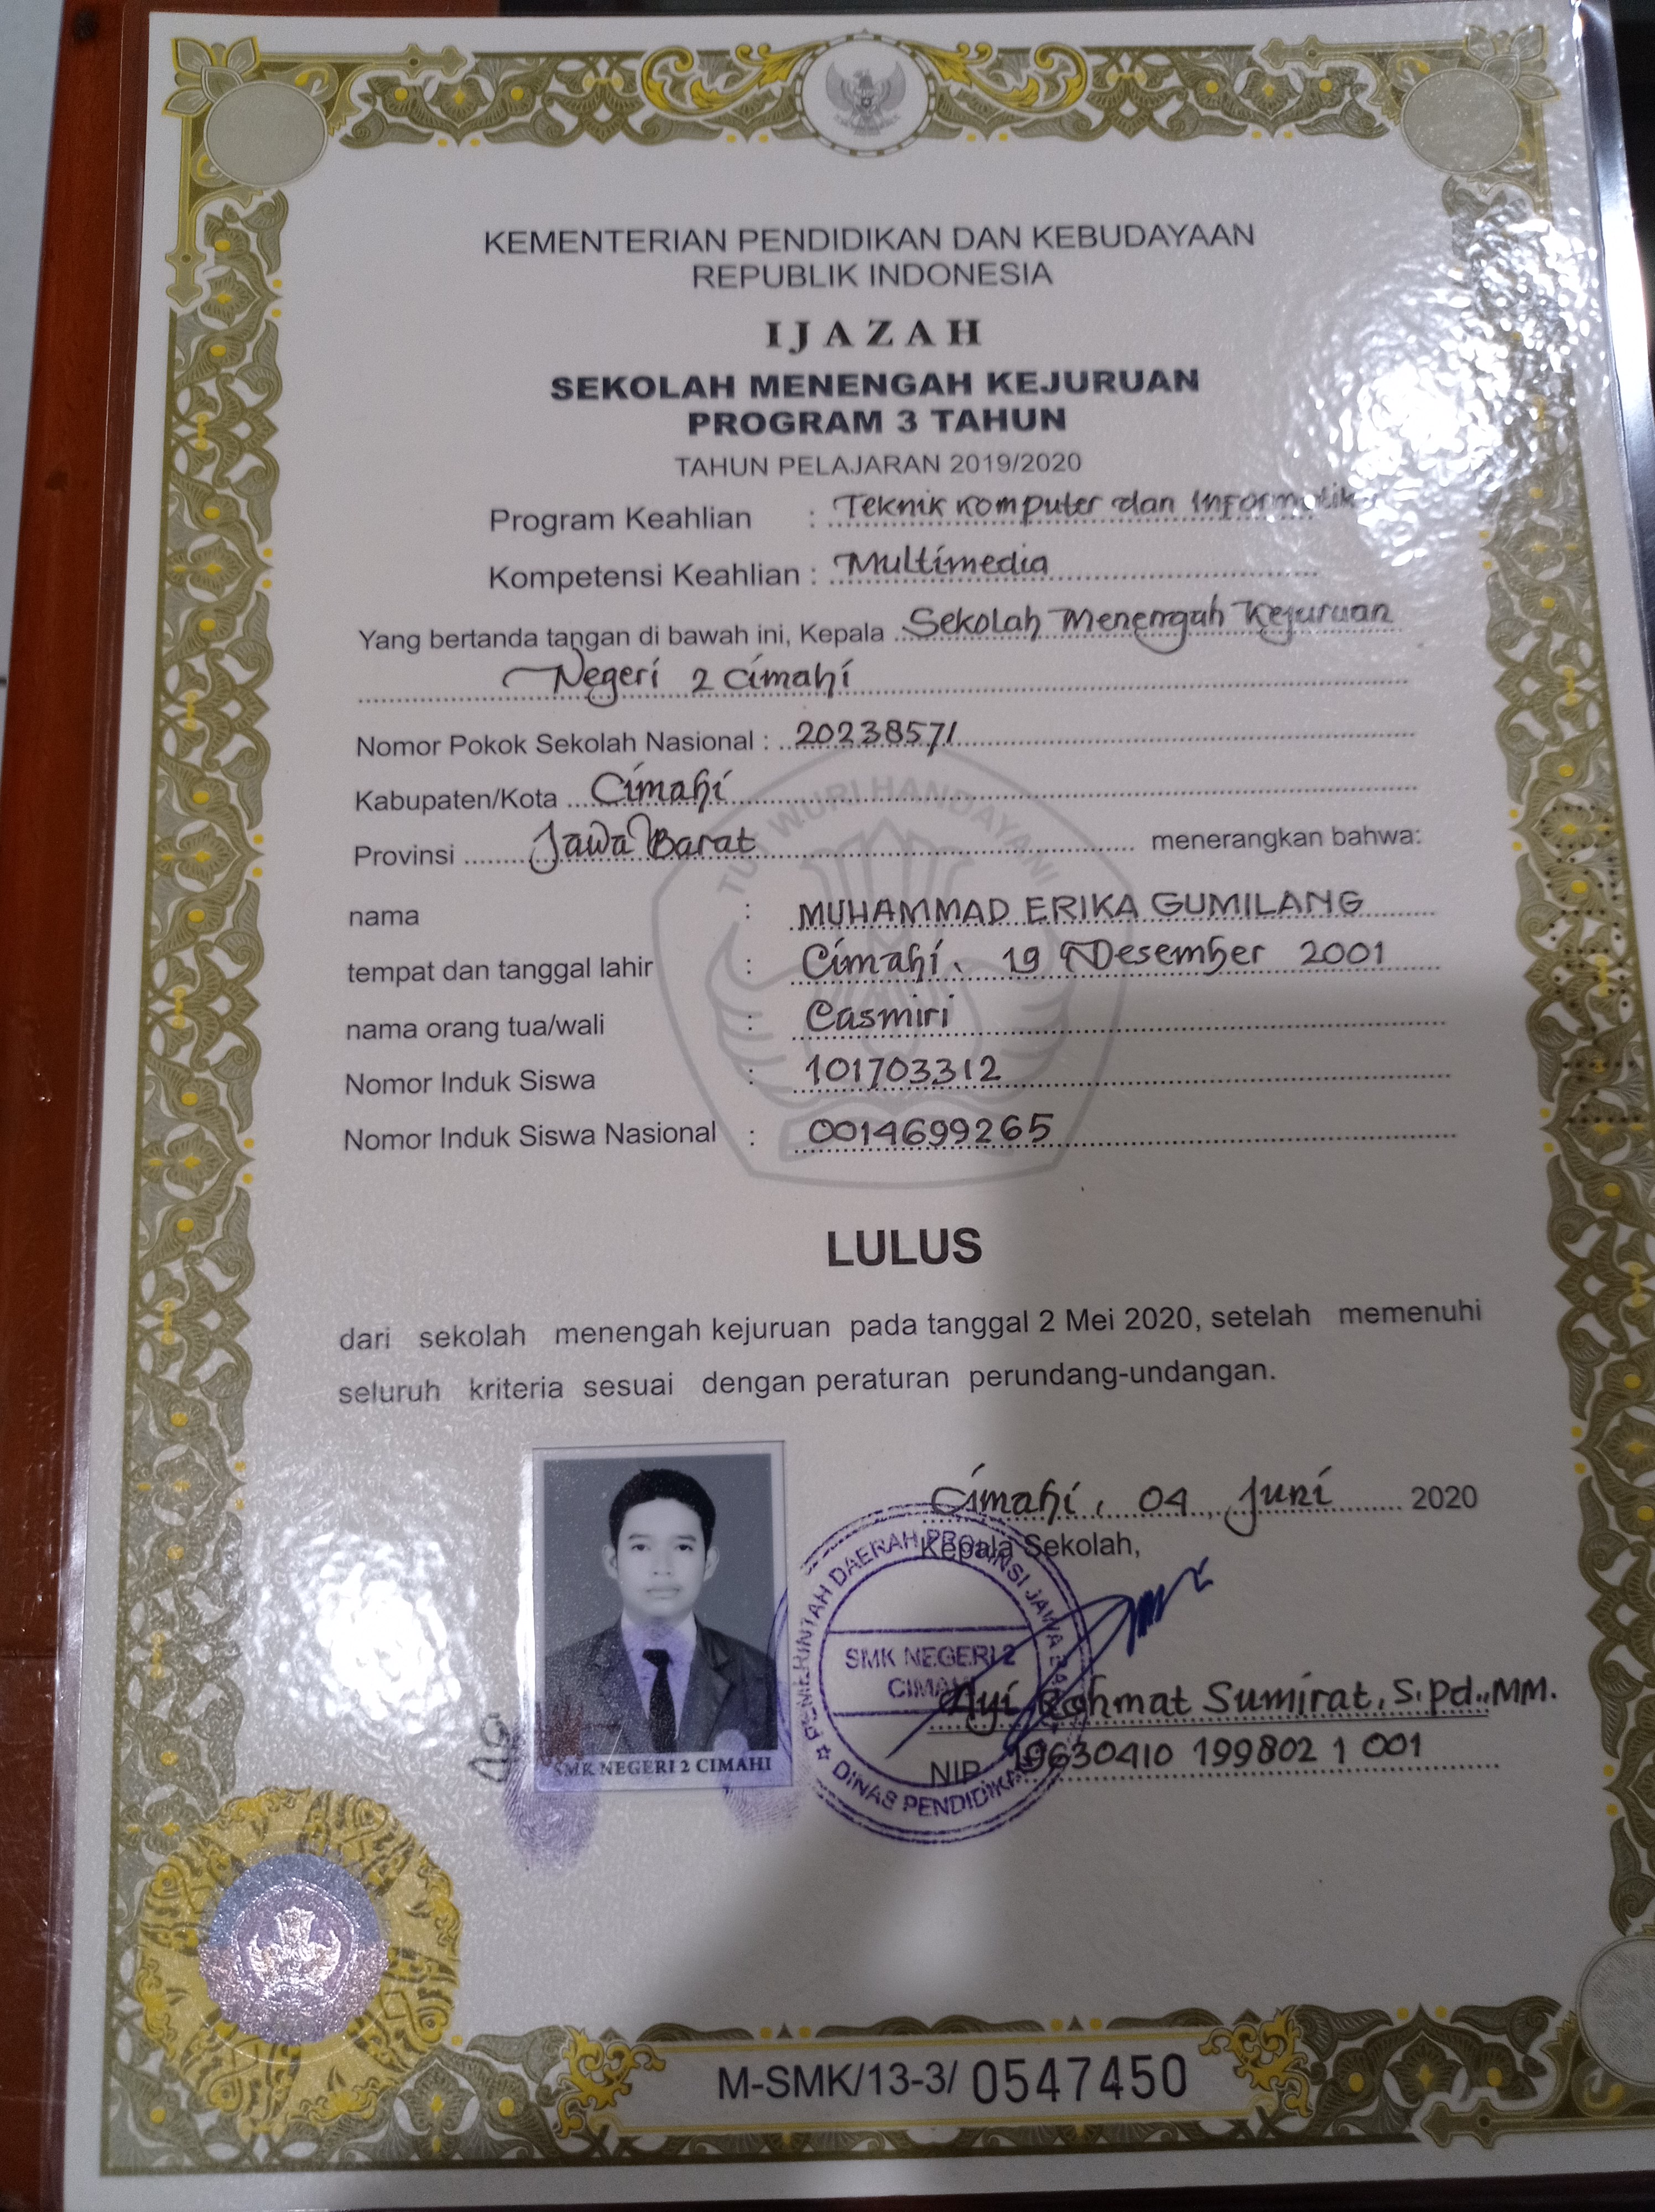 KEMENTERIAN PENDIDIKAN DAN KEBUDAYAAN
REPUBLIK INDONESIA
IJAZAH
SEKOLAH MENENGAH KEJURUAN
PROGRAM 3 TAHUN
TAHUN PELAJARAN 2019/2020
Program Keahlian : Teknik Komputer dan Informatika
Kompetensi Keahlian : Multimedia
Yang bertanda tangan di bawah ini, Kepala Sekolah Menengah Kejuruan
Negeri 2 Cimahi
Nomor Pokok Sekolah Nasional : 20238571
Kabupaten/Kota Cimahi
Provinsi Jawa Barat menerangkan bahwa:
TUT WURI HANDAYANI
nama : MUHAMMAD ERIKA GUMILANG
tempat dan tanggal lahir : Cimahi, 19 Desember 2001
nama orang tua/wali : Casmiri
Nomor Induk Siswa : 101703312
Nomor Induk Siswa Nasional : 0014699265
LULUS
dari sekolah menengah kejuruan pada tanggal 2 Mei 2020, setelah memenuhi
seluruh kriteria sesuai dengan peraturan perundang-undangan.
Cimahi, 04 Juni 2020
Kepala Sekolah,
PEMERINTAH DAERAH PROVINSI JAWA BARAT
SMK NEGERI 2
CIMAHI
DINAS PENDIDIKAN
Ayi Rohmat Sumirat, S.Pd., MM.
NIP 19630410 199802 1 001
SMK NEGERI 2 CIMAHI
M-SMK/13-3/ 0547450